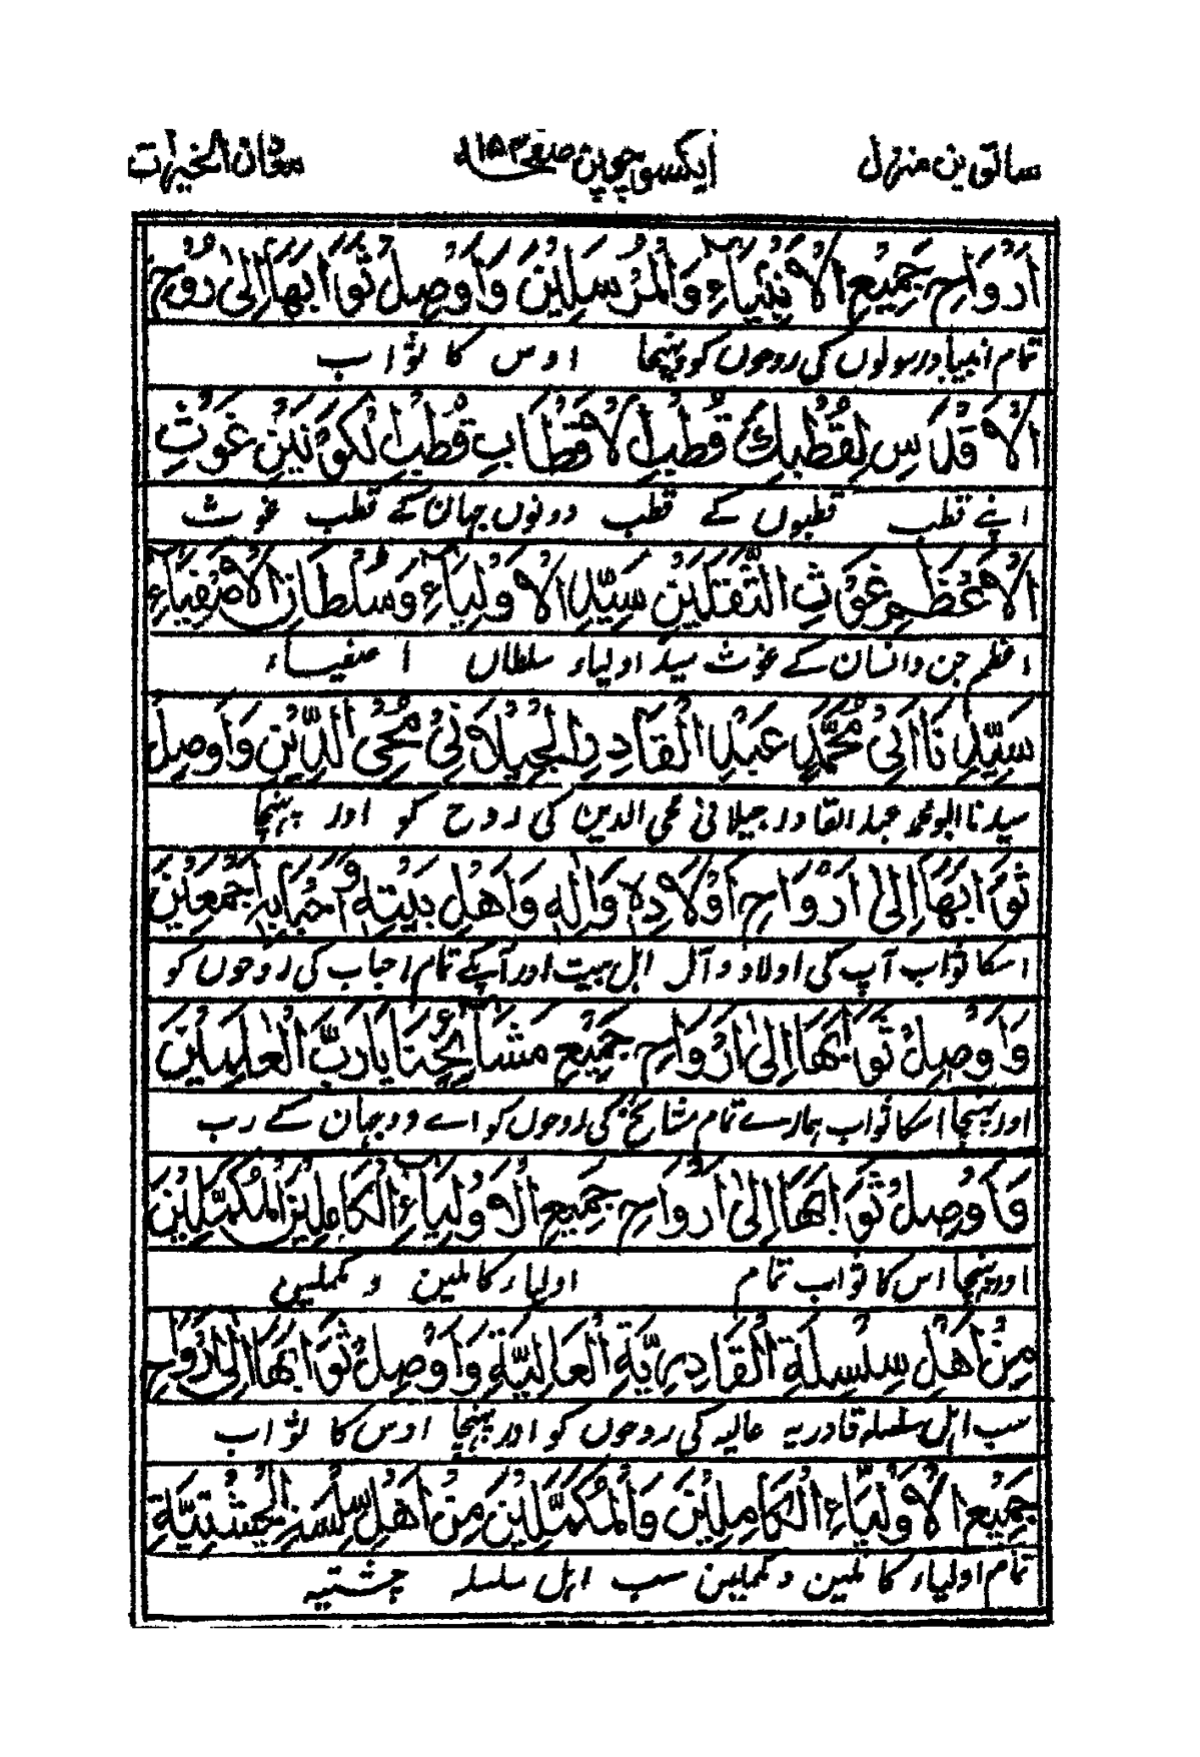 ساتویں منزل ایکسو چوپن صفحہ ۱۵۴ معان الخیرات
اَرْوَاحِ جَمِیْعِ الْاَنْبِیَآءِ وَالْمُرْسَلِیْنَ وَاَوْصِلْ ثَوَابَهَا اِلٰی رُوْحِ
تمام انبیا ورسولوں کی روحوں کو پہنچا اوس کا ثواب
الْاَقْدَسِ لِقُطْبِكَ قُطْبِ الْاَقْطَابِ قُطْبِ الْكَوْنَیْنِ غَوْثِ
اپنے قطب قطبوں کے قطب دونوں جہان کے قطب غوث
الْاَعْظَمِ غَوْثِ الثَّقَلَیْنِ سَیِّدِ الْاَوْلِیَآءِ وَسُلْطَانِ الْاَصْفِیَآءِ
اعظم جن وانسان کے غوث سید اولیاء سلطاں اصفیاء
سَیِّدِنَا اَبِیْ مُحَمَّدٍ عَبْدِ الْقَادِرِ الْجِیْلَانِیْ مُحْیِ الدِّیْنِ وَاَوْصِلْ
سیدنا ابو محمد عبدالقادر جیلانی محی الدین کی روح کو اور پہنچا
ثَوَابَهَا اِلٰی اَرْوَاحِ اَوْلَادِهٖ وَاٰلِهٖ وَاَهْلِ بَیْتِهٖ وَاَحْبَابِهٖ اَجْمَعِیْنَ
اسکا ثواب آپ کی اولاد و آل اہل بیت اور آپکے تمام احباب کی روحوں کو
وَاَوْصِلْ ثَوَابَهَا اِلٰی اَرْوَاحِ جَمِیْعِ مَشَآئِخِنَا یَا رَبَّ الْعٰلَمِیْنَ
اور پہنچا اسکا ثواب ہمارے تمام مشائخ کی روحوں کو اے دو جہان کے رب
وَاَوْصِلْ ثَوَابَهَا اِلٰی اَرْوَاحِ جَمِیْعِ الْاَوْلِیَآءِ الْكَامِلِیْنَ الْمُكَمَّلِیْنَ
اور پہنچا اس کا ثواب تمام اولیاء کاملین و مکملین
مِنْ اَهْلِ سِلْسِلَةِ الْقَادِرِیَّةِ الْعَالِیَّةِ وَاَوْصِلْ ثَوَابَهَا اِلٰی اَرْوَاحِ
سب اہل سلسلہ قادریہ عالیہ کی روحوں کو اور پہنچا اوس کا ثواب
جَمِیْعِ الْاَوْلِیَّآءِ الْكَامِلِیْنَ وَالْمُكَمَّلِیْنَ مِنْ اَهْلِ سِلْسِلَةِ الْچِشْتِیَّةِ
تمام اولیاء کاملین و مکملین سب اہل سلسلہ چشتیہ